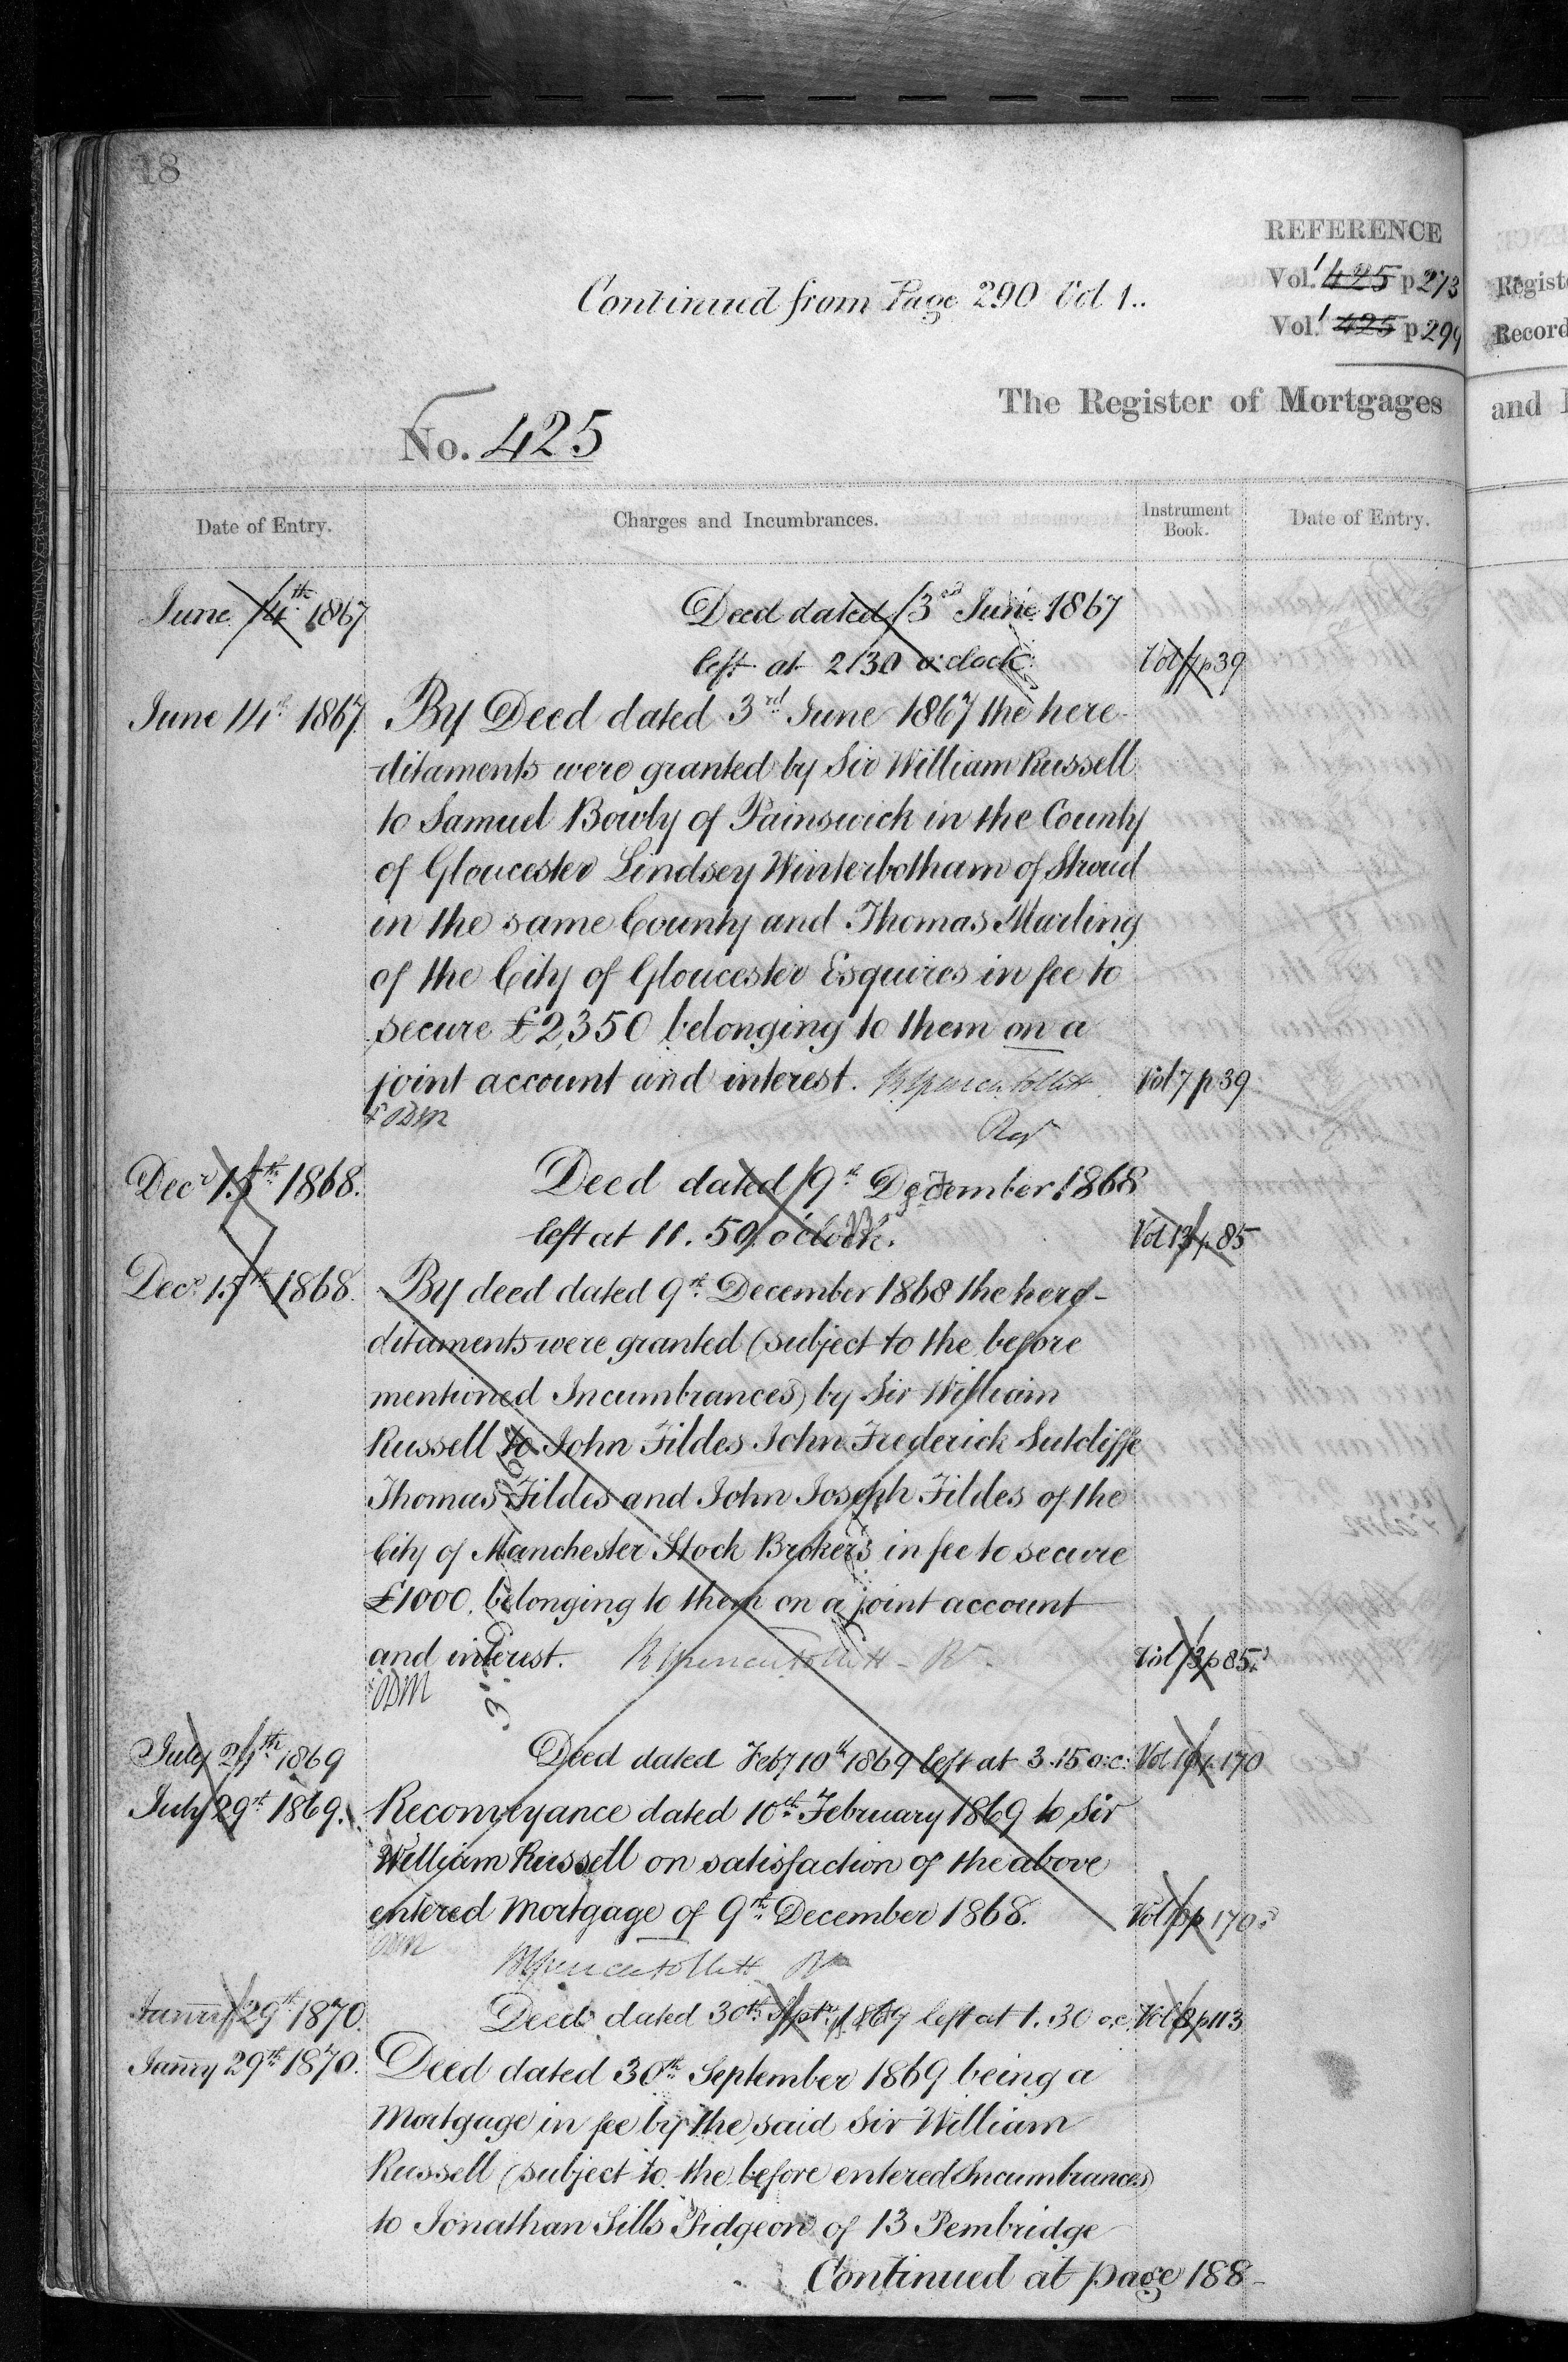 18
REFERENCE
Continued from Page 290 Vol 1..
Vol. 1 425 p 273
Vol. 1 425 p 299
The Register of Mortgages
No. 425
Date of Entry.
Charges and Incumbrances.
Instrument Book.
Date of Entry.
June 14th 1867
Deed dated 3rd June 1867
left at 2/30 o'clock
Vol 7 p 39
June 14th 1867
By Deed dated 3rd June 1867 the here-
ditaments were granted by Sir William Russell
to Samuel Bowly of Painswick in the County
of Gloucester Lindsey Winterbotham of Stroud
in the same County and Thomas Marling
of the City of Gloucester Esquires in fee to
secure £2,350 belonging to them on a
joint account and interest.
Vol 7 p 39
ODM
Decr 15th 1868.
Deed dated 9th December 1868
left at 11.50 o'clock.
Vol 13 p 85
Decr 15th 1868.
By deed dated 9th December 1868 the here-
ditaments were granted (subject to the before
mentioned Incumbrances) by Sir William
Russell to John Fildes John Frederick Sutcliffe
Thomas Fildes and John Joseph Fildes of the
City of Manchester Stock Brokers in fee to secure
£1000. belonging to them on a joint account
and interest.
Vol 13 p 85
ODM
July 29th 1869
Deed dated Feby 10th 1869 left at 3.15 o.c.
Vol p 170
July 29th 1869.
Reconveyance dated 10th February 1869 to Sir
William Russell on satisfaction of the above
entered Mortgage of 9th December 1868.
Vol p 170
Janry 29th 1870.
Deed dated 30th Septr 1869 left at 1.30 o.c.
Vol p 113
Janry 29th 1870.
Deed dated 30th September 1869 being a
Mortgage in fee by the said Sir William
Russell (subject to the before entered Incumbrances)
to Jonathan Sills Pidgeon of 13 Pembridge
Continued at page 188-
Regist
Record
and